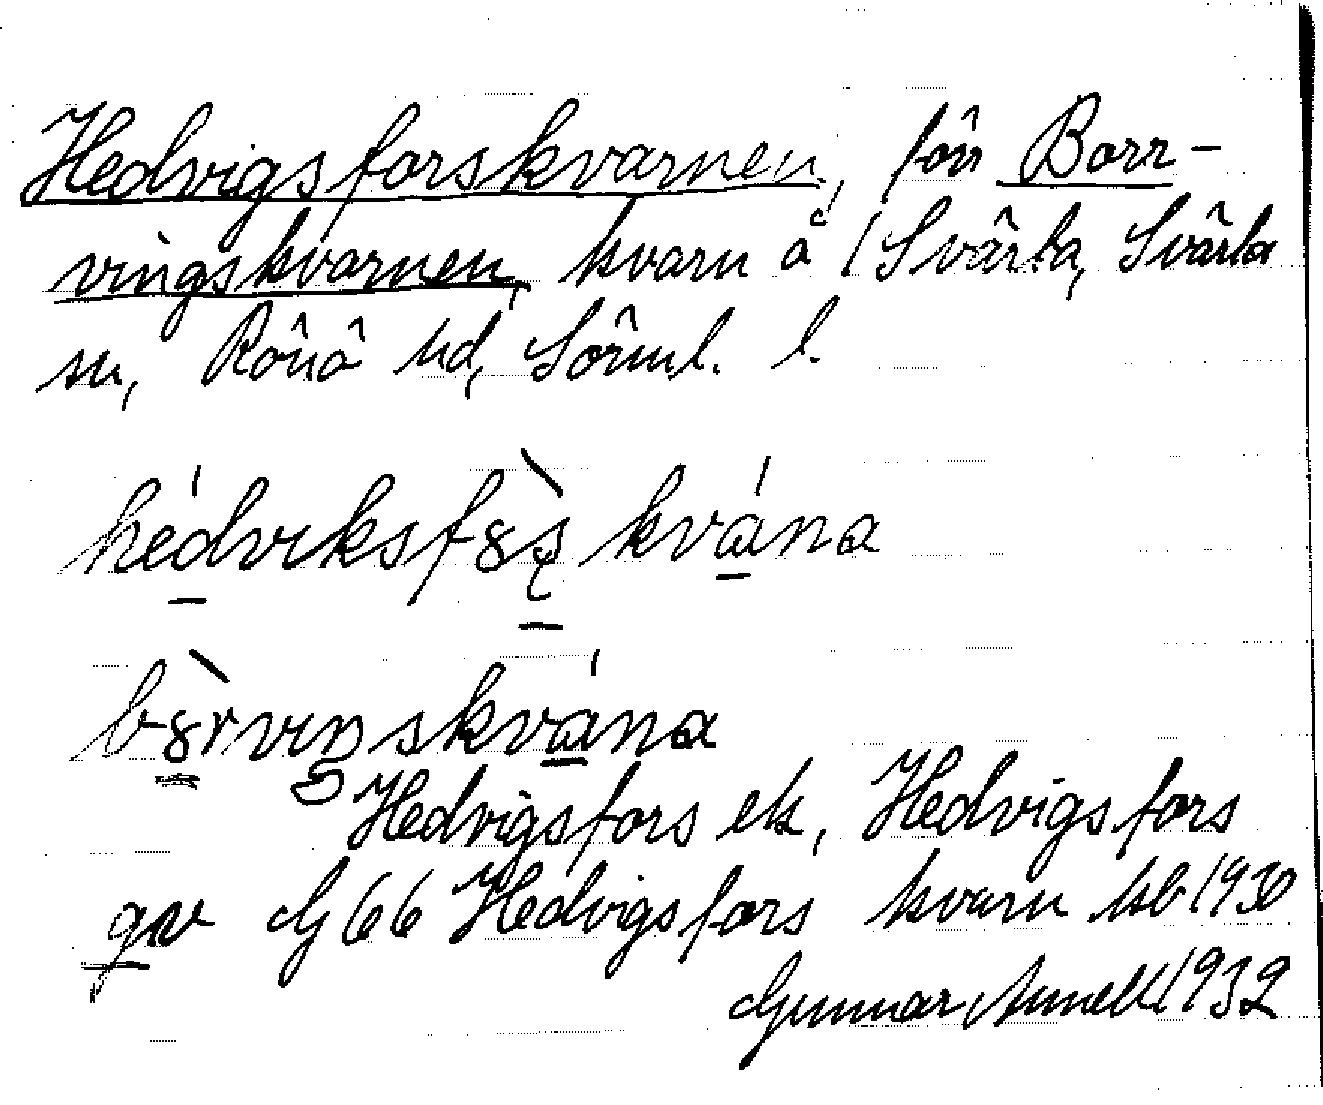 Hedvigsforskvarnen, förr Borr-
vingskvarnen, kvarn å 1 Svärta, Svärta
sn, Rönö hd, Sörml. l.
hédvɩksfȣ̀ʂ kvána
bȣ̀rvɩŋskvána
Hedvigsfors ek, Hedvigsfors
qv G 66 Hedvigsfors kvarn kb 1930
Gunnar Annell 1932